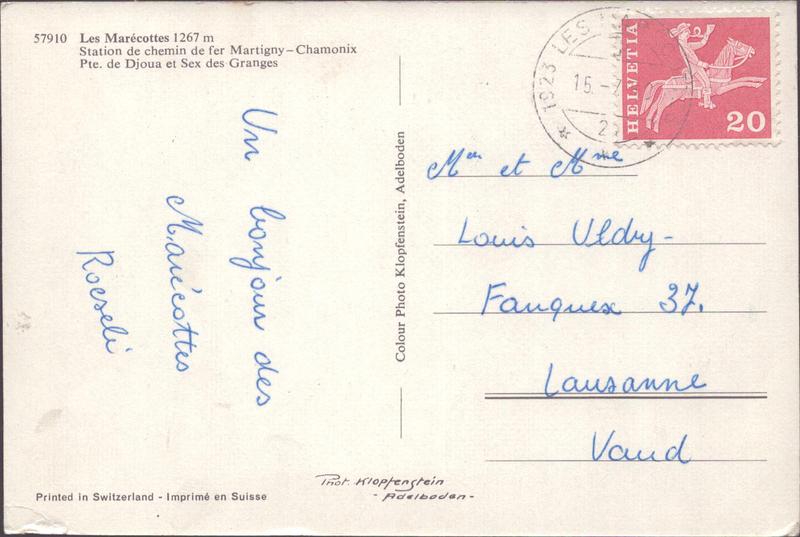 57910 Les Marécottes 1267 m
Station de chemin de fer Martigny–Chamonix
Pte. de Djoua et Sex des Granges
Un bonjour des
Marécottes
Roeseli
Colour Photo Klopfenstein, Adelboden
1923 LES
15.
HELVETIA
20
Mr et Mme
Louis Uldry-
Fauquex 37.
Lausanne
Vaud
Phot. Klopfenstein
- Adelboden -
Printed in Switzerland - Imprimé en Suisse